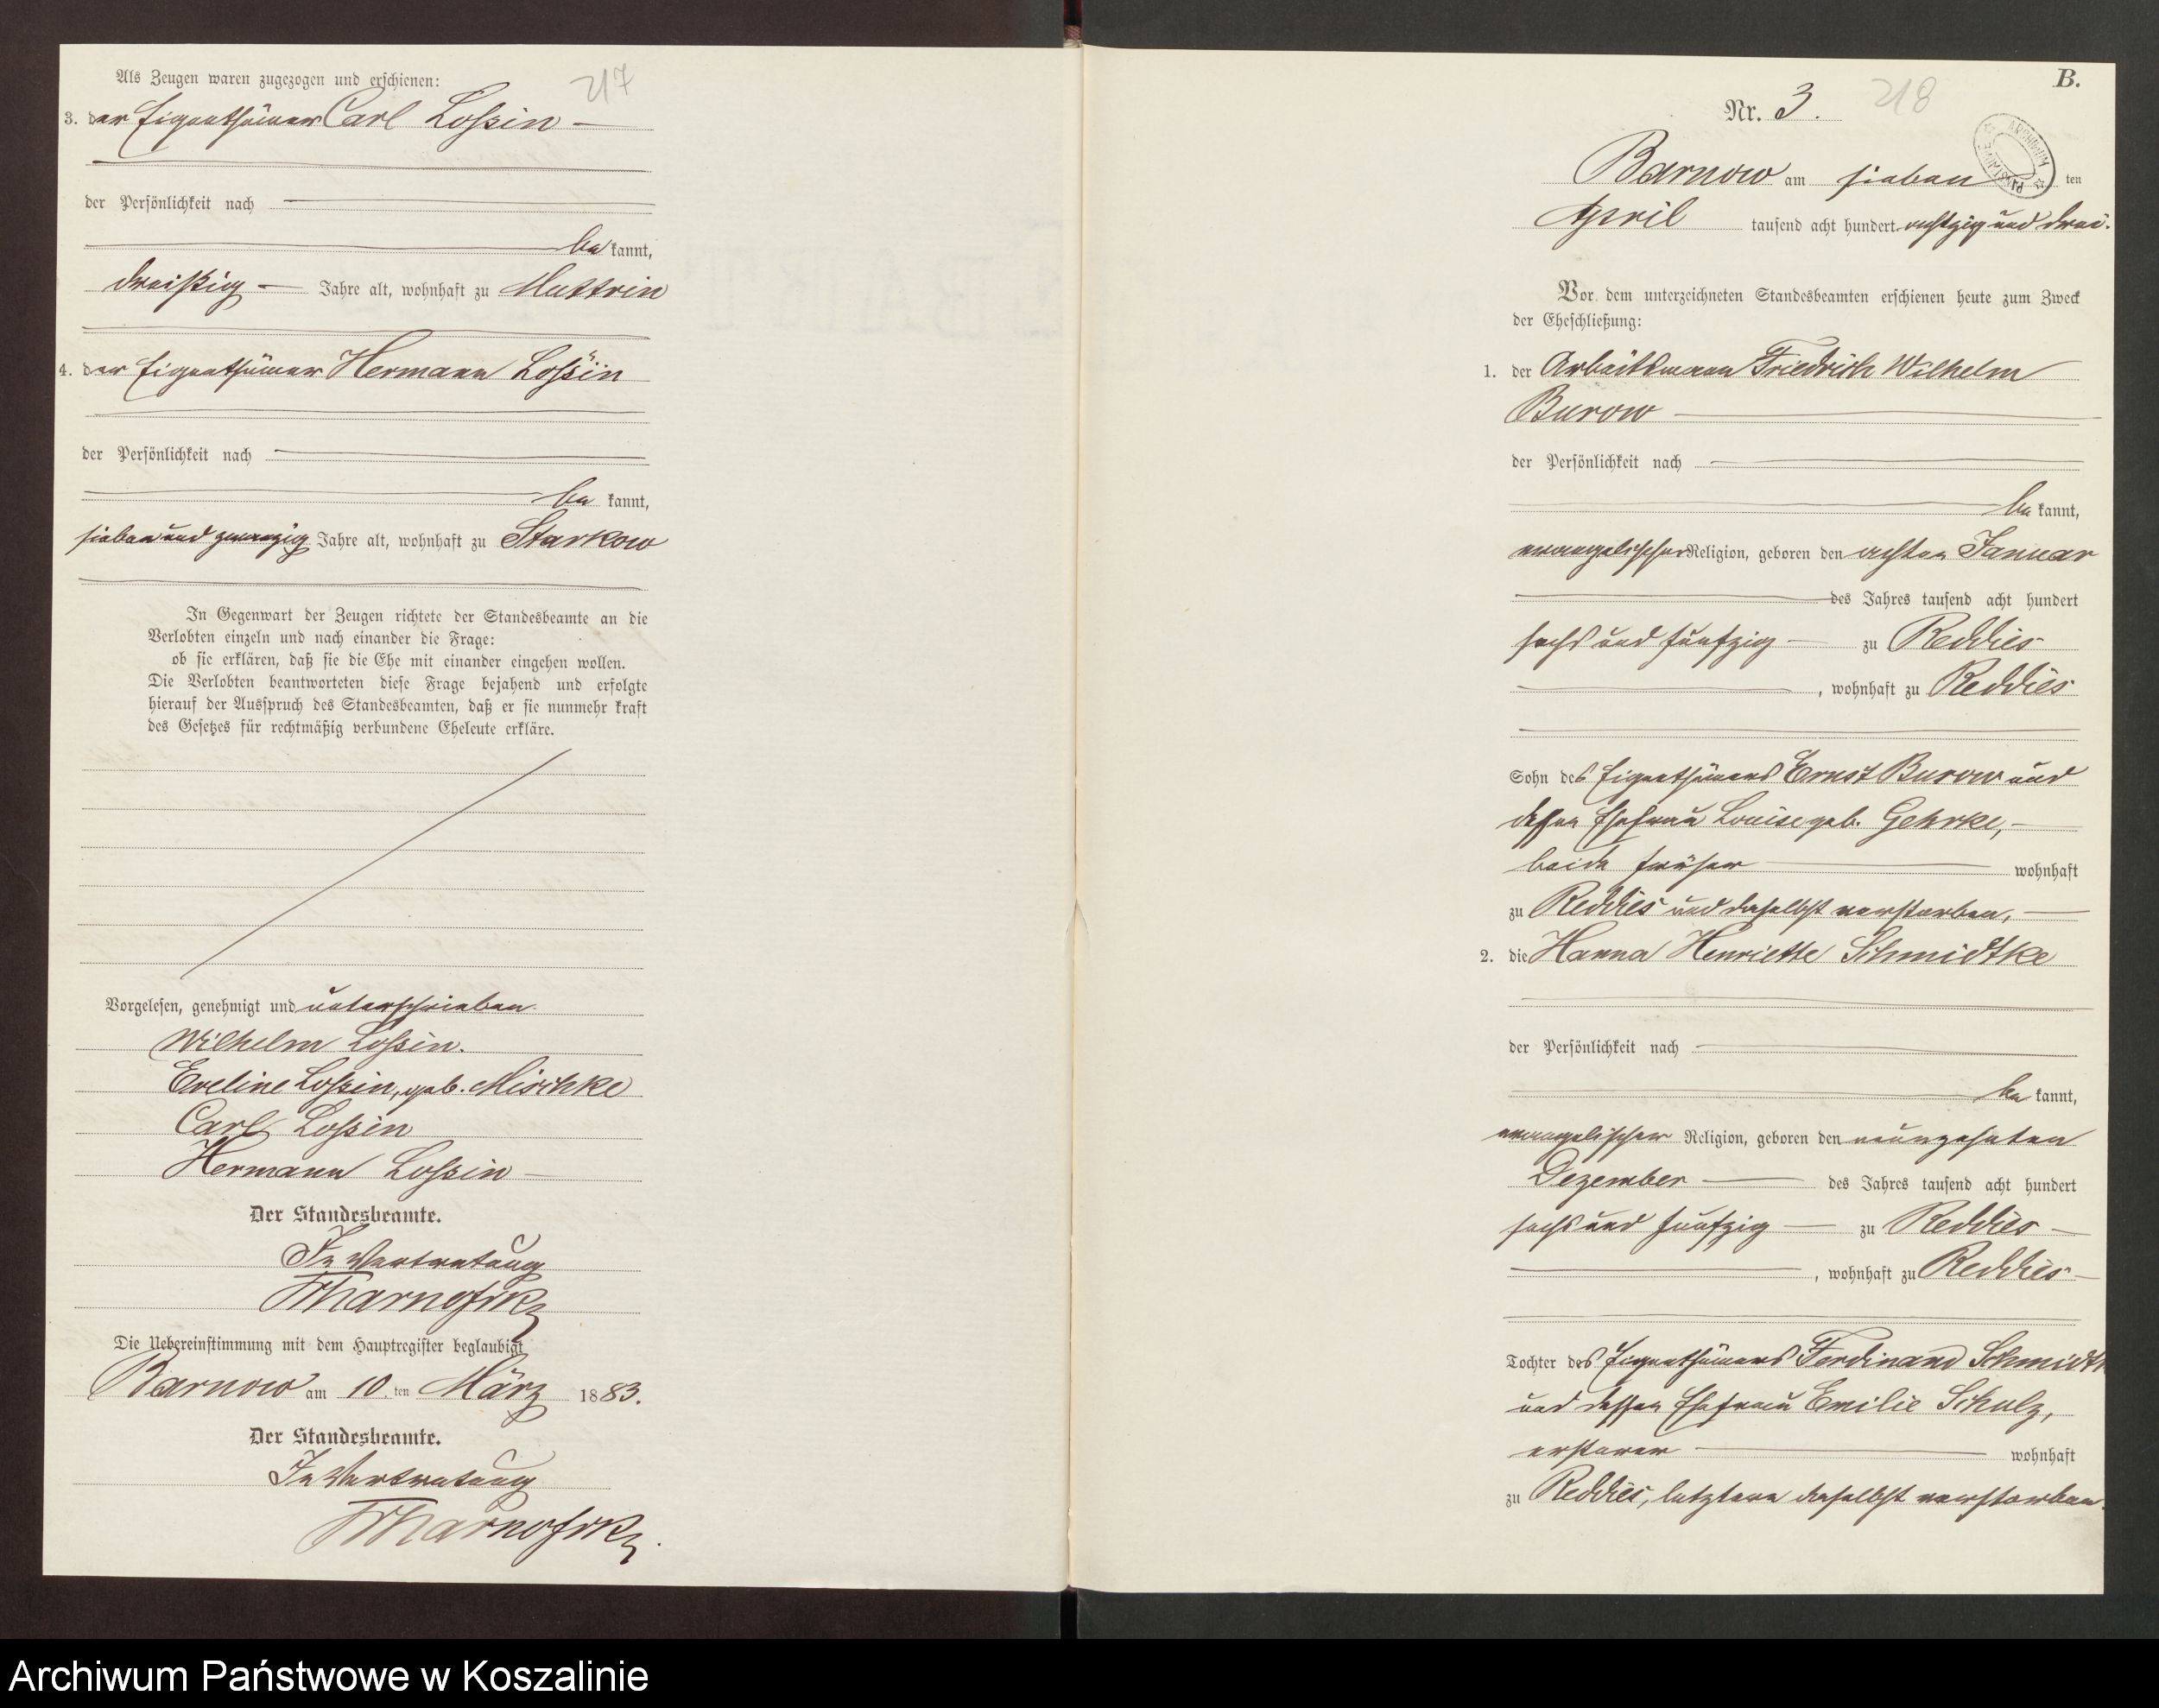 217
Als Zeugen waren zugezogen und erschienen:
3. der Eigenthümer Carl Loßin
der Persönlichkeit nach
be kannt,
dreißig Jahre alt, wohnhaft zu Muttrin
4. der Eigenthümer Hermann Loßin
der Persönlichkeit nach
be kannt,
sieben und zwanzig Jahre alt, wohnhaft zu Starkow
In Gegenwart der Zeugen richtete der Standesbeamte an die
Verlobten einzeln und nach einander die Frage:
ob sie erklären, daß sie die Ehe mit einander eingehen wollen.
Die Verlobten beantworteten diese Frage bejahend und erfolgte
hierauf der Ausspruch des Standesbeamten, daß er sie nunmehr kraft
des Gesetzes für rechtmäßig verbundene Eheleute erkläre.
Vorgelesen, genehmigt und unterschrieben.
Wilhelm Loßin.
Eveline Loßin, geb. Mischke
Carl Loßin
Hermann Loßin
Der Standesbeamte.
In Vertretung
Die Uebereinstimmung mit dem Hauptregister beglaubigt
Barnow am 10.ten März 1883.
Der Standesbeamte.
In Vertretung
B.
218
Nr. 3.
ARCHIWUM PAŃSTWOWE
Barnow am sieben ten
April tausend acht hundert achtzig und drei.
Vor dem unterzeichneten Standesbeamten erschienen heute zum Zweck
der Eheschließung:
1. der Arbeitsmann Friedrich Wilhelm
Burow
der Persönlichkeit nach
be kannt,
evangelischer Religion, geboren den achten Januar
des Jahres tausend acht hundert
sechs und fünfzig zu Reddies
, wohnhaft zu Reddies
Sohn des Eigenthümers Ernst Burow und
dessen Ehefrau Louise geb. Gehrke,
beide früher wohnhaft
zu Reddies und daselbst verstorben,
2. die Hanna Henriette Schmidtke
der Persönlichkeit nach
be kannt,
evangelischer Religion, geboren den neunzehnten
Dezember des Jahres tausend acht hundert
sechs und fünfzig zu Reddies
, wohnhaft zu Reddies
Tochter des Eigenthümers Ferdinand Schmidtk
und dessen Ehefrau Emilie Schulz,
ersterer wohnhaft
zu Reddies, letztere daselbst verstorben.
Archiwum Państwowe w Koszalinie